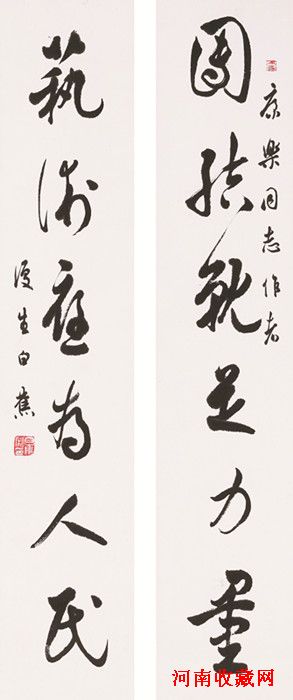 康樂同志作者
團結就是力量
藝術應為人民
復生白蕉
河南收藏网